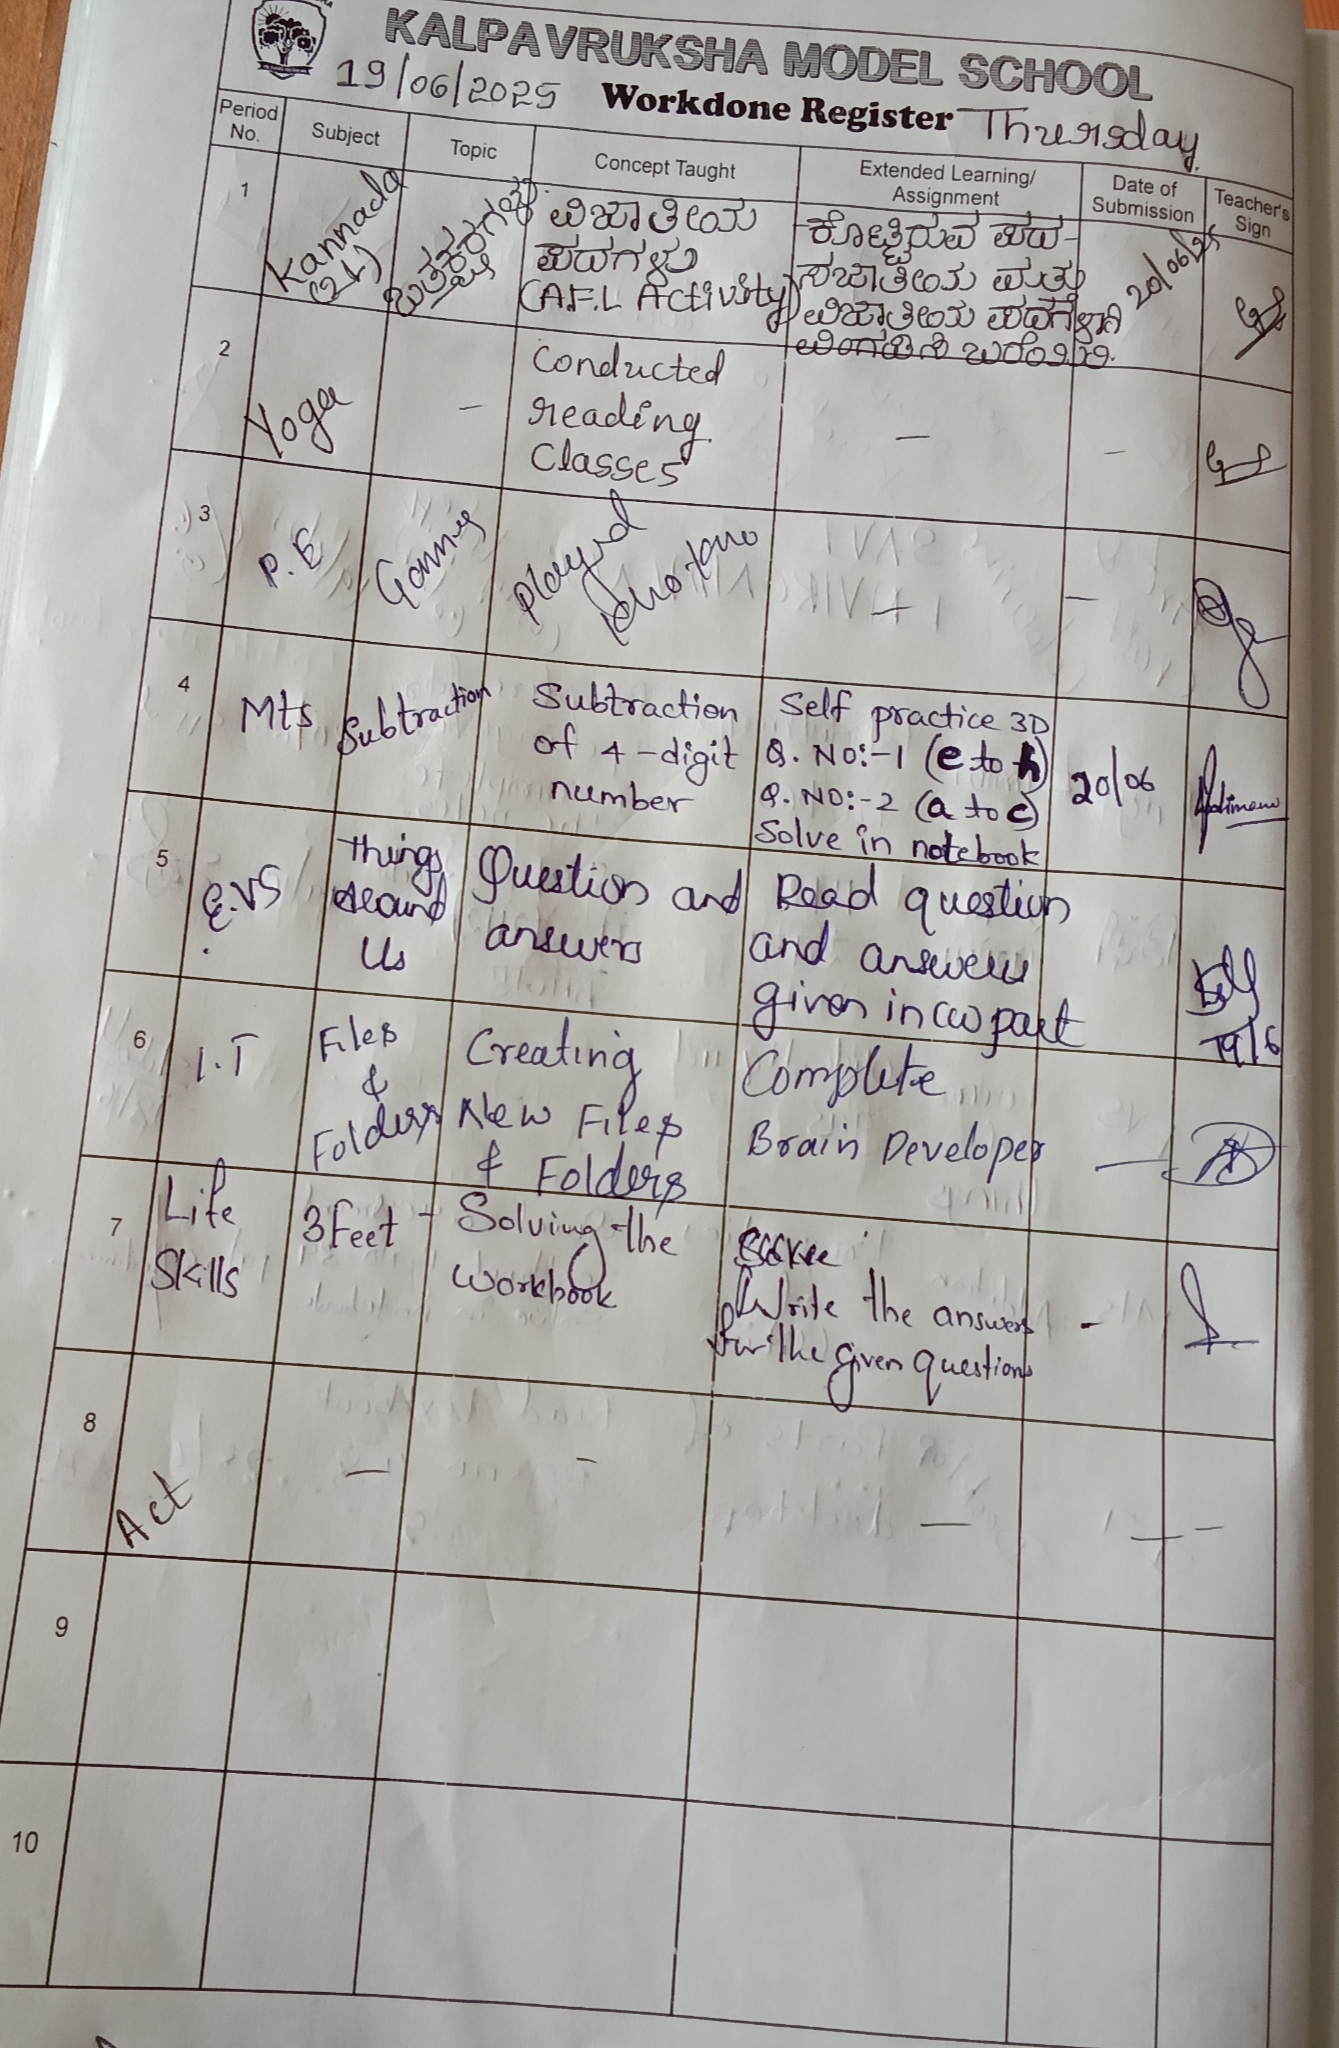 KALPAVRUKSHA MODEL SCHOOL
19/06/2025 Workdone Register Thursday
Period No. Subject Topic Concept Taught Extended Learning/ Assignment Date of Submission Teacher's Sign
1
Kannada
(2L)
ಒತ್ತಕ್ಷರಗಳು
ವಿಜಾತೀಯ
ಪದಗಳು
(A.F.L Activity)
ಕೊಟ್ಟಿರುವ ಪದ-
ಸಜಾತೀಯ ಮತ್ತು
ವಿಜಾತೀಯ ಪದಗಳಾಗಿ
ವಿಂಗಡಿಸಿ ಬರೆಯಿರಿ.
20/06/25
2
Yoga
-
Conducted
reading
Classes
-
-
3
P.E
Games
played
kho kho
-
-
4
Mts
Subtraction
Subtraction
of 4-digit
number
Self practice 3D
Q. NO:-1 (e to h)
Q. NO:-2 (a to c)
Solve in notebook
20/06
5
E.VS
Things
around
Us
Question and
answers
Read question
and answers
given in cw part
19/6
6
I.T
Files
&
Folders
Creating
New Files
& Folders
Complete
Brain Developer
-
7
Life
Skills
3 Feet -
Solving the
Workbook
Write the answers
for the given questions
-
8
Act
-
-
-
-
-
9
10